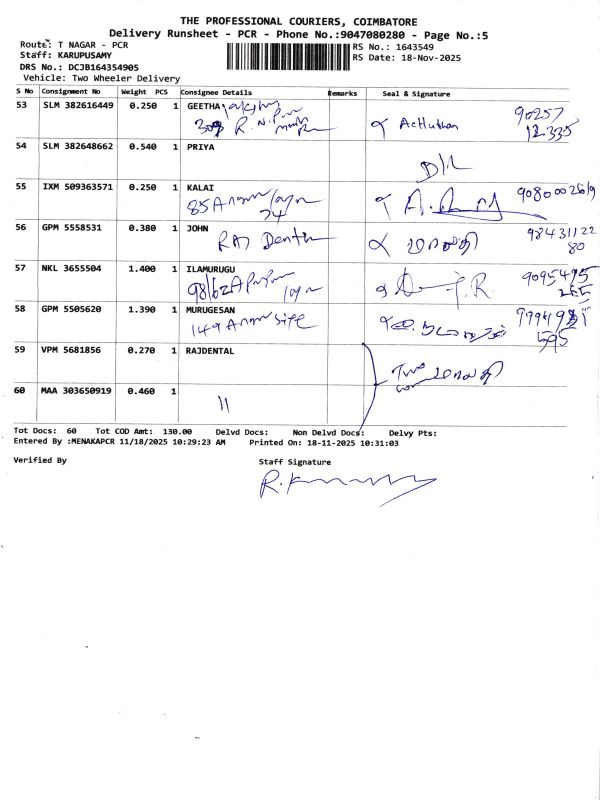 THE PROFESSIONAL COURIERS, COIMBATORE
Delivery Runsheet - PCR - Phone No.:9047080280 - Page No.:5
Route: T NAGAR - PCR
RS No.: 1643549
Staff: KARUPUSAMY
RS Date: 18-Nov-2025
DRS No.: DCJB164354905
Vehicle: Two Wheeler Delivery
S No Consignment No Weight PCS Consignee Details Remarks Seal & Signature
53 SLM 382616449 0.250 1 GEETHA 90257
R. N. Achuthan 12335
54 SLM 382648662 0.540 1 PRIYA
D/L
55 IXM 509363571 0.250 1 KALAI
85 A
56 GPM 5558531 0.380 1 JOHN 98431122
RAJ Dental மாலதி 80
57 NKL 3655504 1.400 1 ILAMURUGU 9095495
98/62A 255
58 GPM 5505620 1.390 1 MURUGESAN
149 Site 595
59 VPM 5681856 0.270 1 RAJDENTAL
Two மாலதி
60 MAA 303650919 0.460 1
11
Tot Docs: 60 Tot COD Amt: 130.00 Delvd Docs: Non Delvd Docs: Delvy Pts:
Entered By :MENAKAPCR 11/18/2025 10:29:23 AM Printed On: 18-11-2025 10:31:03
Verified By Staff Signature